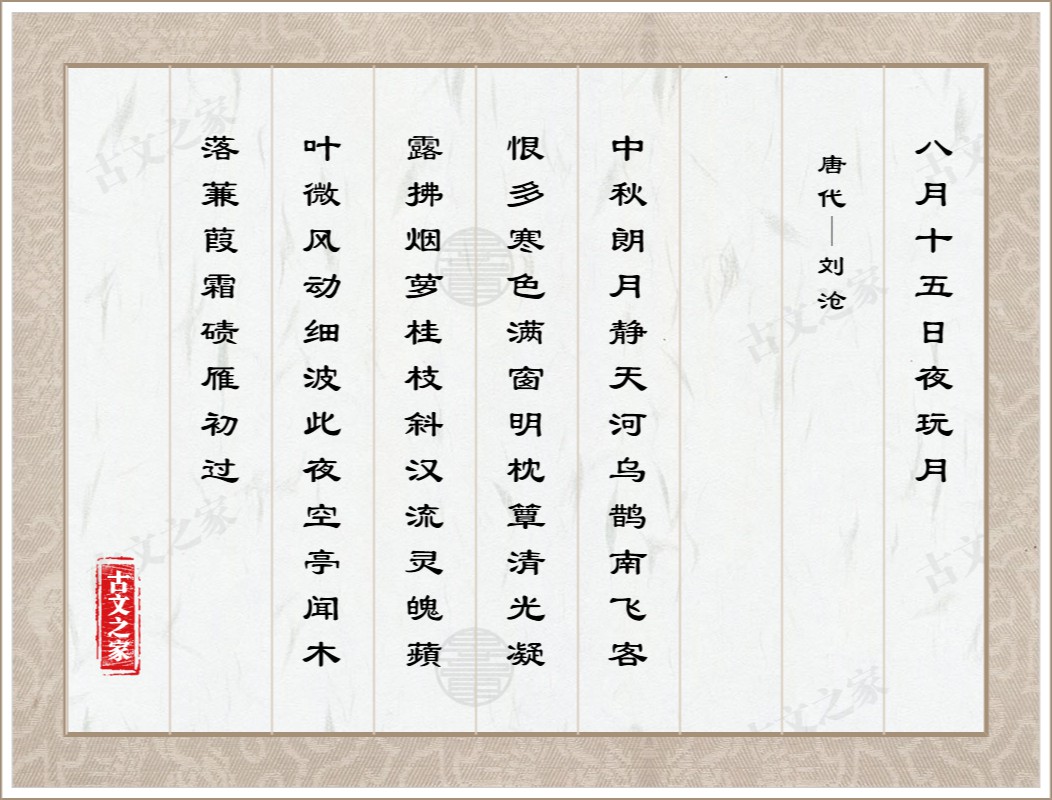 八月十五日夜玩月
唐代—刘沧
中秋朗月静天河乌鹊南飞客
恨多寒色满窗明枕簟清光凝
露拂烟萝桂枝斜汉流灵魄蘋
叶微风动细波此夜空亭闻木
落蒹葭霜碛雁初过
古文之家
古文之家
古文之家
古文之家
古文之家
古文之家
古文之家